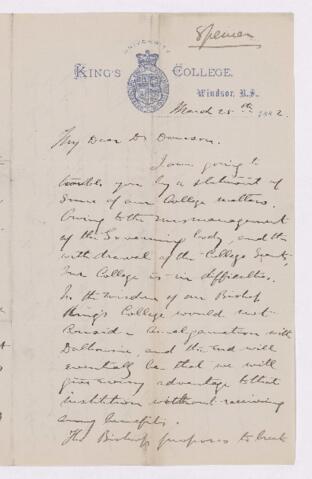 Spencer
UNIVERSITY
KING'S COLLEGE.
Windsor, N.S.
March 25th 1882.
My Dear Dr Dawson.
I am going to
trouble you by a statement of
Some of our College matters.
Owing to the mismanagement
of the Governing body, and the
withdrawal of the College Grant,
our College is in difficulties.
In the wisdom of our Bishop
King's College would not
Consider Amalgamation with
Dalhousie, and the end will
eventually be that we will
give every advantage to that
institution without receiving
any benefits.
The Bishop proposes to break